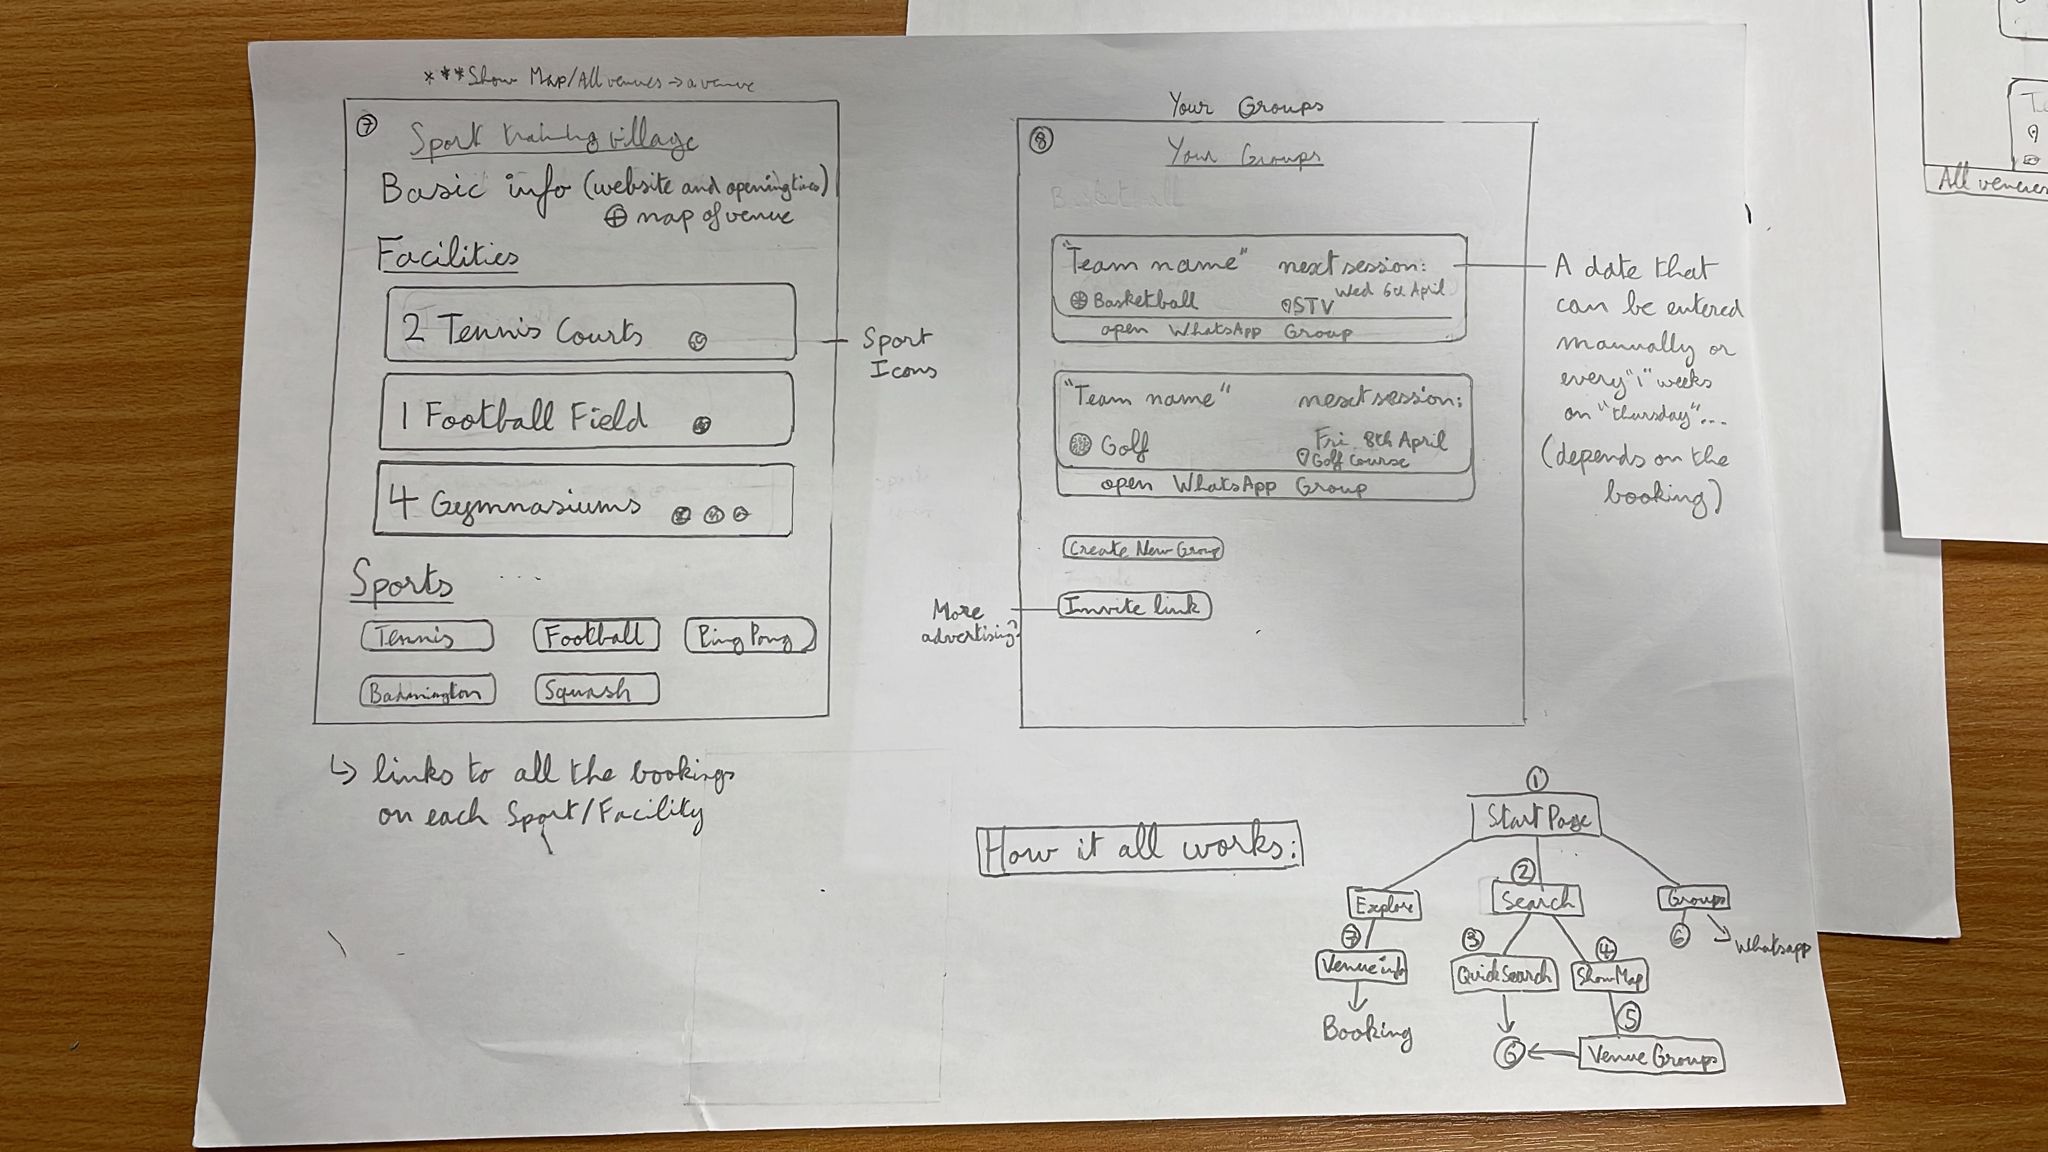 ***Show Map/All venues → a venue
7
Sport training village
Basic info (website and opening times)
⊕ map of venue
Facilities
2 Tennis Courts
1 Football Field
4 Gymnasiums
Sport
Icons
Sports ...
Tennis Football Ping Pong
Badmington Squash
↳ links to all the bookings
on each Sport/Facility
Your Groups
8
Your Groups
Basketball
"Team name" next session:
Wed 6th April
Basketball STV
open WhatsApp Group
"Team name" next session:
Golf Fri 8th April
Golf course
open WhatsApp Group
Create New Group
Invite link
More
advertising?
A date that
can be entered
manually or
every "1" weeks
on "thursday"...
(depends on the
booking)
How it all works:
1
Start Page
2
Explore Search Groups
7 3 4 6 Whatsapp
Venue info Quick Search Show Map
5
Booking 6 ← Venue Groups
All venues